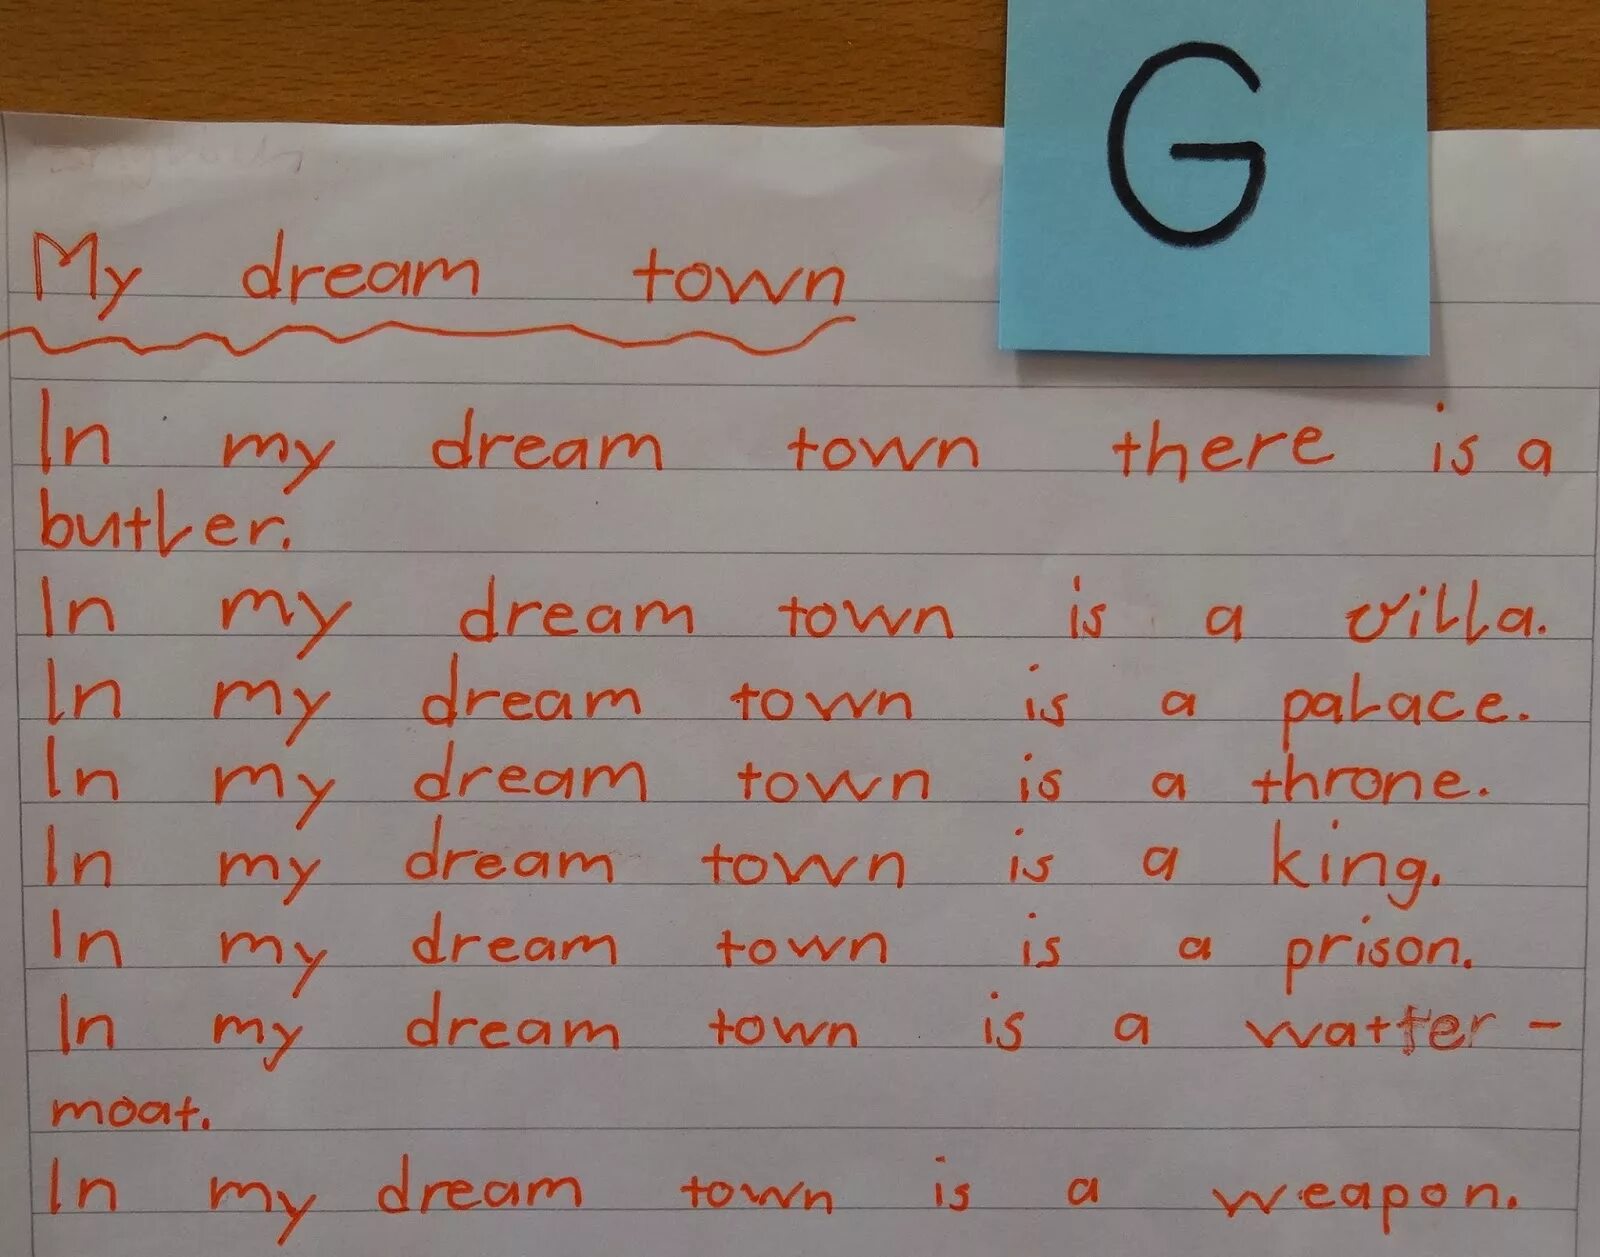 G
My dream town
In my dream town there is a
butler.
In my dream town is a villa.
In my dream town is a palace.
In my dream town is a throne.
In my dream town is a king.
In my dream town is a prison.
In my dream town is a watter-
moat.
In my dream town is a weapon.